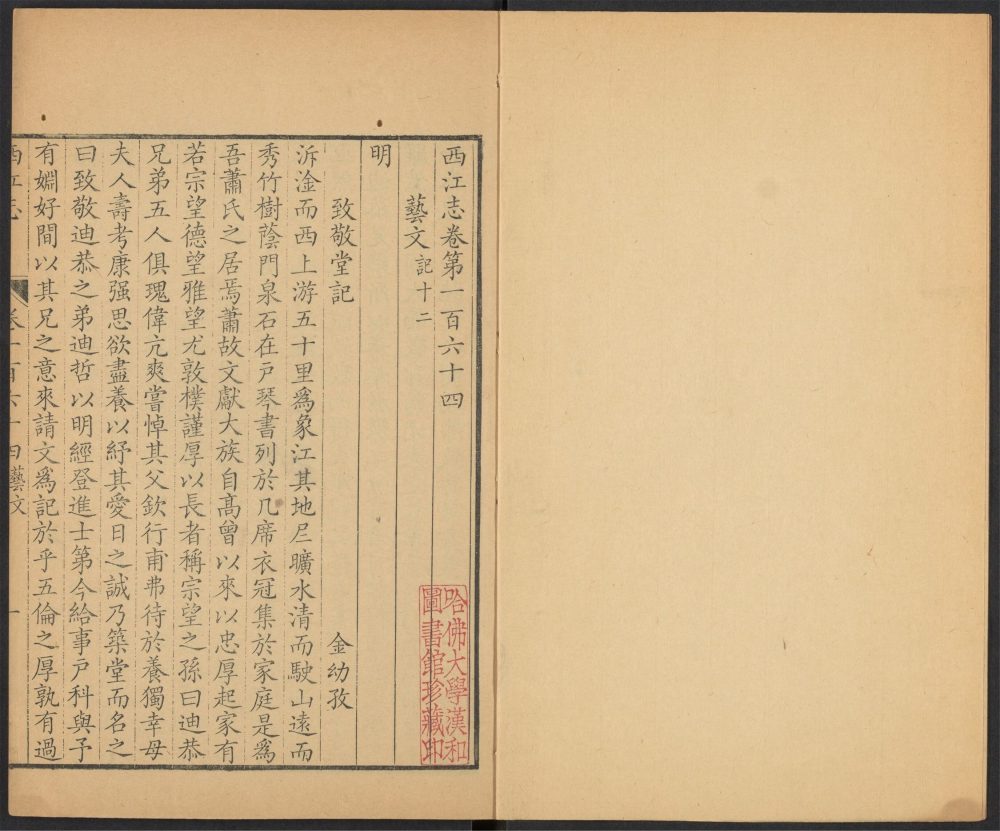 西江志卷第一百六十四
藝文 記十二
明
致敬堂記 金幼孜
泝淦而西上游五十里爲象江其地𤰞曠水清而駛山遠而
秀竹樹蔭門泉石在戸琴書列於几席衣冠集於家庭是爲
吾蕭氏之居焉蕭故文獻大族自高曾以來以忠厚起家有
若宗望德望雅望尤敦樸謹厚以長者稱宗望之孫曰迪恭
兄弟五人俱瑰偉亢爽嘗悼其父欽行甫弗待於養獨幸母
夫人壽考康强思欲盡養以紓其愛日之誠乃築堂而名之
曰致敬迪恭之弟迪哲以明經登進士第今給事戸科與予
有婣好間以其兄之意來請文爲記於乎五倫之厚孰有過
西江志 卷一百六十四 藝文 一
哈佛大學漢和
圖書館珍藏印